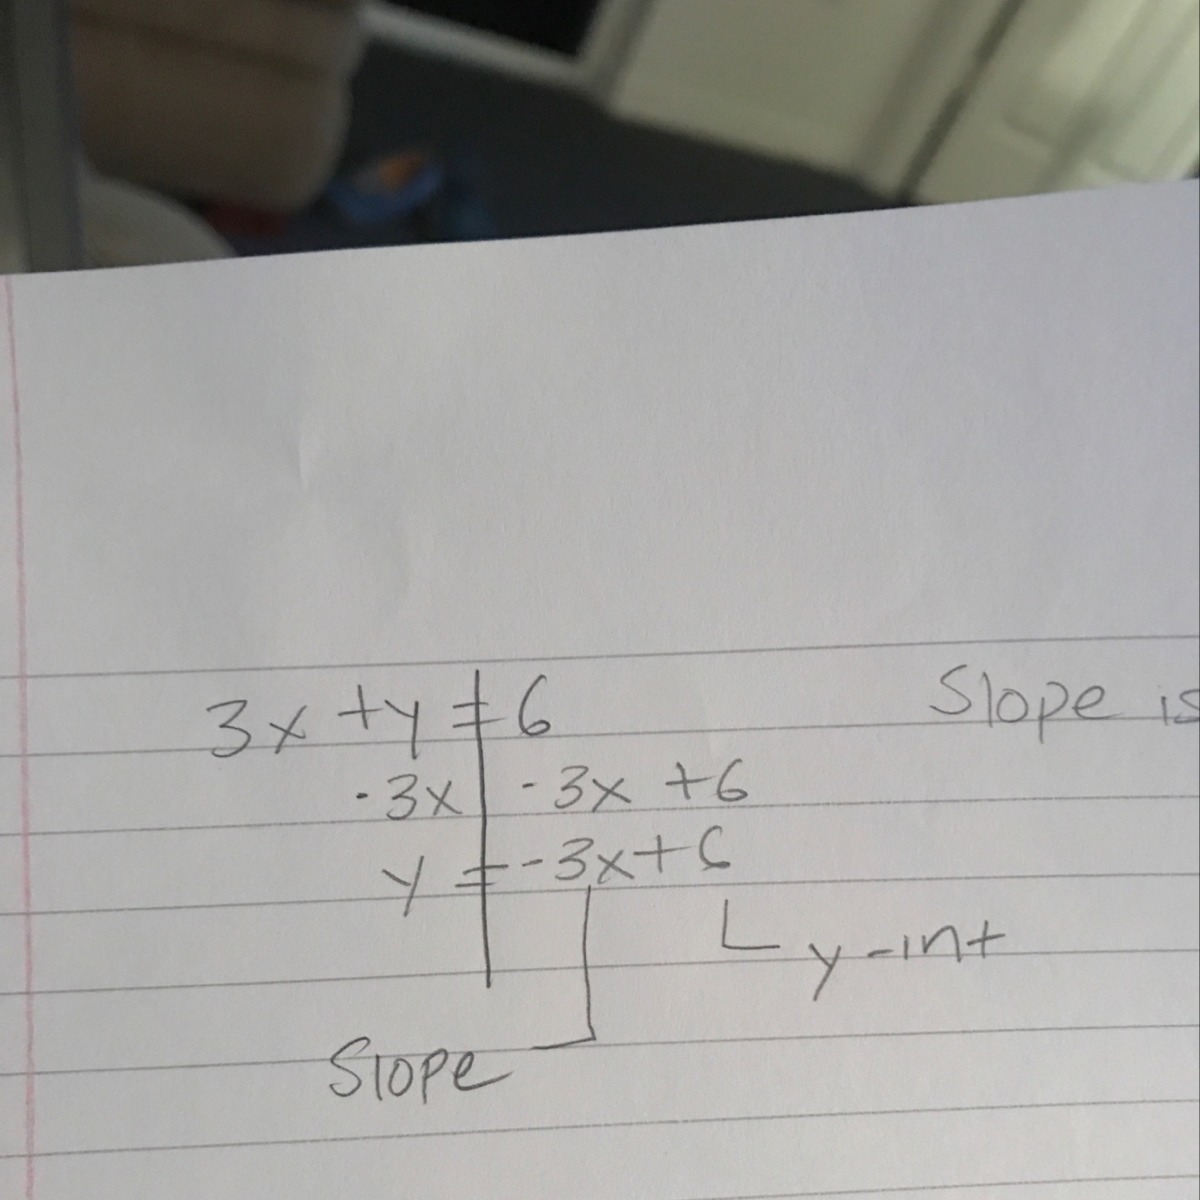 3x + y = 6
Slope is
-3x | -3x + 6
y = -3x + 6
y-int
Slope